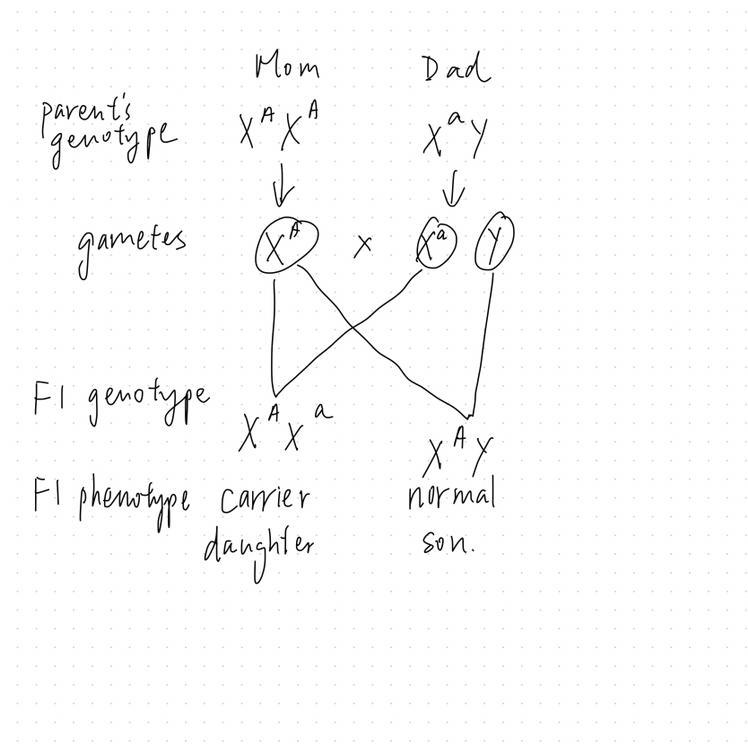 Mom Dad
parent's
genotype X^A X^A X^a Y
gametes X^A x X^a Y
F1 genotype
X^A X^a X^A Y
F1 phenotype carrier normal
daughter son.